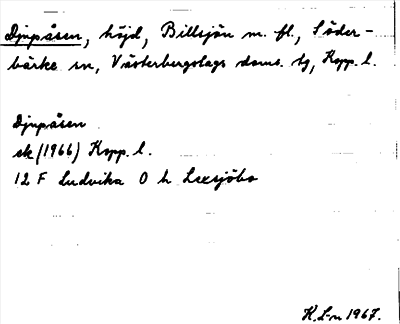 Djupåsen, höjd, Billsjön m. fl., Söder-
bärke sn, Västerbergslags doms. tg, Kopp. l.
Djupåsen
ek (1966) Kopp. l.
12 F Ludvika O h Lexsjöbo
K. L-n 1967.